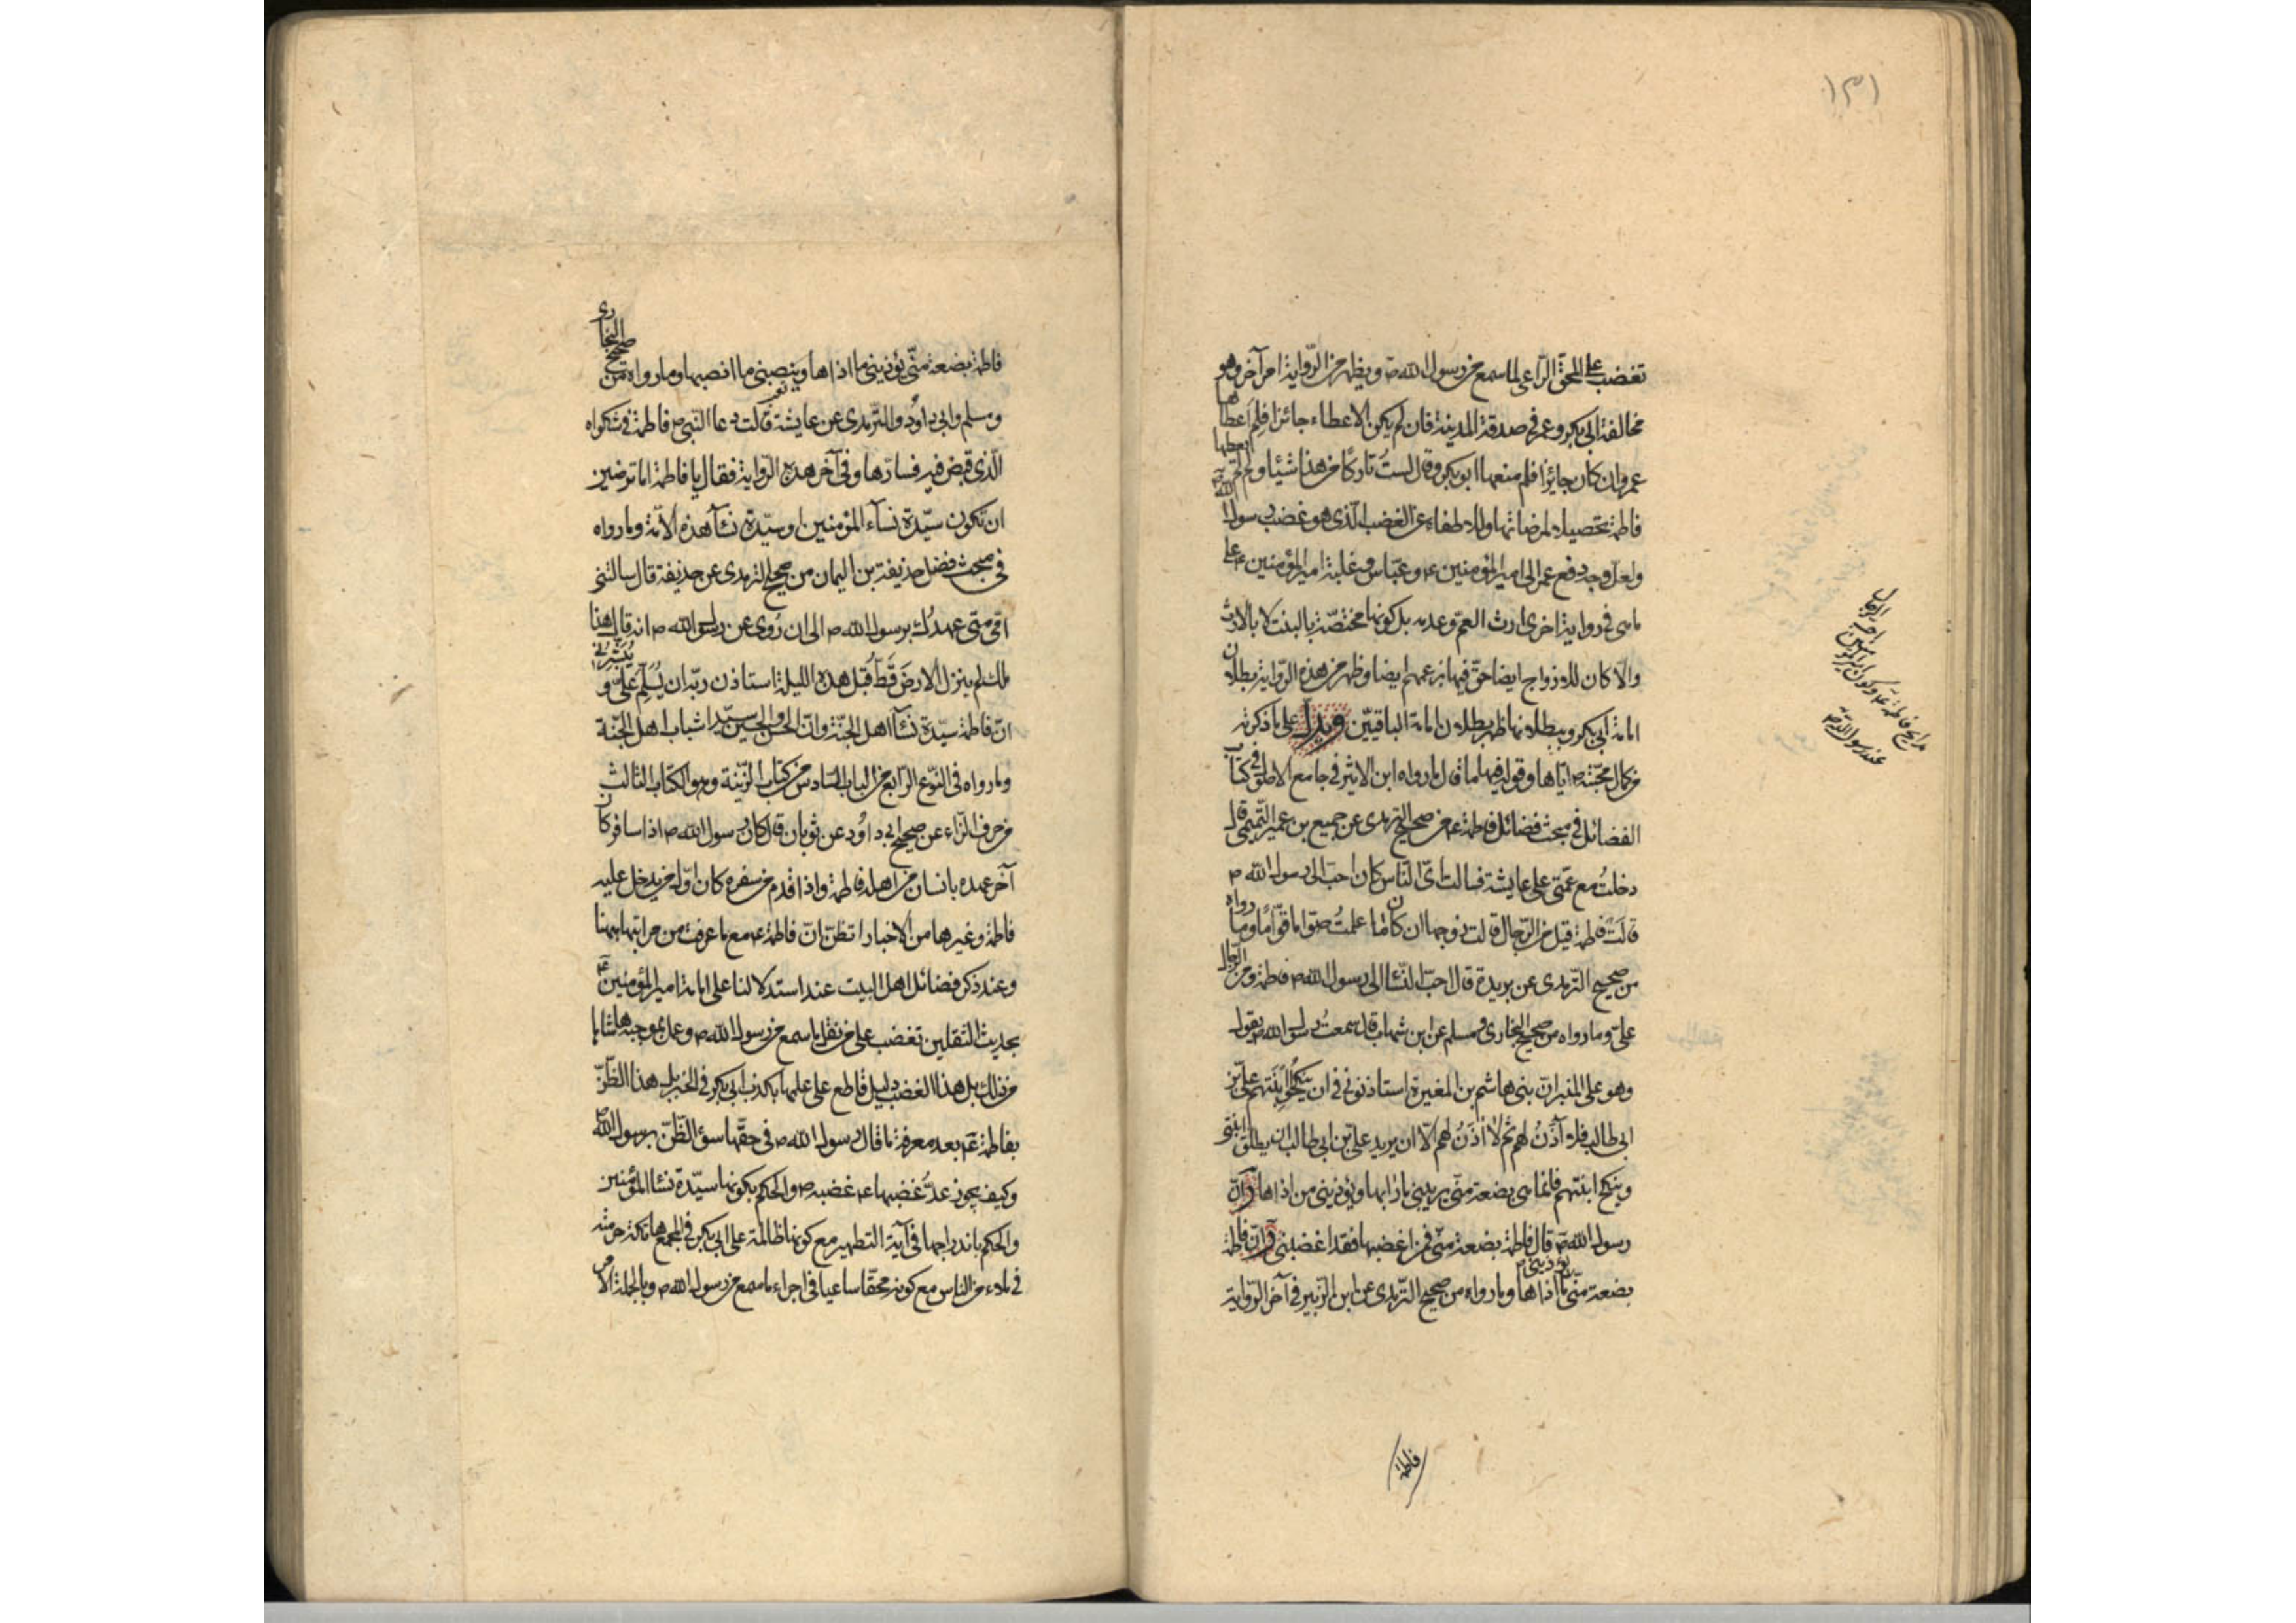 ١٣١
تغضب على المحق الراعى لما سمع من رسول الله ص ويظهر من الرواية امر آخر وهو
مخالفة ابى بكر وعمر فى صدقة المدينة فان لم يكن الاعطاء جائزا فلم اعطاها
عمر وان كان جائزا فلم منعها ابو بكر وقال لست تاركا من هذا شيئا ولم لم يعطها
فاطمة تحصيلا لمرضاتها ولاطفاء عن الغضب الذى هو غضب رسول الله ص
ولعل وجه دفع عمر الى امير المؤمنين ع وعباس وغلبة امير المؤمنين ع على
ما مر فى رواية اخرى ارث العم وعدمه بل كونها مختصة بالبنت لا بالارث
والا كان للازواج ايضا حق فيها بزعمهم ايضا وظهر من هذه الرواية بطلان
امامة ابى بكر وببطلانها ظهر بطلان امامة الباقيين على ما ذكرته
من كمال محبته ص اياها وقوله فيها ما قال ما رواه ابن الاثير فى جامع الاصول فى كتاب
الفضائل فى مبحث فضائل فاطمة ع من صحيح الترمذى عن جميع بن عمير التميمى قال
دخلت مع عمتى على عايشة فسالت اى الناس كان احب الى رسول الله ص
قالت فاطمة قيل من الرجال قالت زوجها ان كان ما علمت صواما قواما وما رواه
من صحيح الترمذى عن بريدة قال احب النساء الى رسول الله ص فاطمة ومن الرجال
على وما رواه من صحيح البخارى ومسلم عن ابن شهاب قال سمعت رسول الله ص يقول
وهو على المنبر ان بنى هاشم بن المغيرة استاذنونى فى ان ينكحوا ابنتهم على بن
ابى طالب فلا آذن لهم ثم لا آذن لهم الا ان يريد على بن ابى طالب ان يطلق ابنتى
وينكح ابنتهم فانما هى بضعة منى يريبنى ما رابها ويؤذينى من اذاها وان
رسول الله ص قال فاطمة بضعة منى فمن اغضبها فقد اغضبنى وان فاطمة
بضعة منى يؤذينى ما اذاها وما رواه من صحيح الترمذى عن ابن الزبير فى آخر الرواية
فاطمة
فاطمة بضعة منى يؤذينى ما اذاها وينصبنى ما انصبها وما رواه من صحيح البخارى
ومسلم وابى داود والترمذى عن عايشة قالت دعا النبى ص فاطمة فى شكواه
الذى قبض فيه فسارها وفى آخر هذه الرواية فقال يا فاطمة اما ترضين
ان تكون سيدة نساء المؤمنين او سيدة نساء هذه الامة وما رواه
فى مبحث فضل حذيفة بن اليمان من صحيح الترمذى عن حذيفة قال سالتنى
امى متى عهدك برسول الله ص الى ان روى عن رسول الله ص انه قال هذا
ملك لم ينزل الارض قط قبل هذه الليلة استاذن ربه ان يسلم على ويبشرنى
ان فاطمة سيدة نساء اهل الجنة وان الحسن والحسين سيدا شباب اهل الجنة
وما رواه فى النوع الرابع من الباب السادس من كتاب الزينة وهو الكتاب الثالث
من حرف الزاء عن صحيح ابى داود عن ثوبان قال كان رسول الله ص اذا سافر كان
آخر عهده بانسان من اهله فاطمة واذا قدم من سفره كان اول من يدخل عليه
فاطمة وغيرها من الاخبار اتظن ان فاطمة ع مع ما عرفت من مراتبها ههنا
وعند ذكر فضائل اهل البيت عند استدلالنا على امامة امير المؤمنين ع
بحديث الثقلين تغضب على من نقل ما سمع من رسول الله ص وعمل بموجبه حاشاها
من ذلك بل هذا الغضب دليل قاطع على علمها بكذب ابى بكر فى الخبر بل هذا الظن
بفاطمة ع بعد معرفة ما قال رسول الله ص فى حقها سوء الظن برسول الله ص
وكيف يجوز عد غضبها ع غضبه ص والحكم بكونها سيدة نساء المؤمنين
والحكم باندراجها فى آية التطهير مع كونها ظالمة على ابى بكر فى
فى ملاء من الناس مع كونه محقا ساعيا فى اجراء ما سمع من رسول الله ص وبالجملة الامر